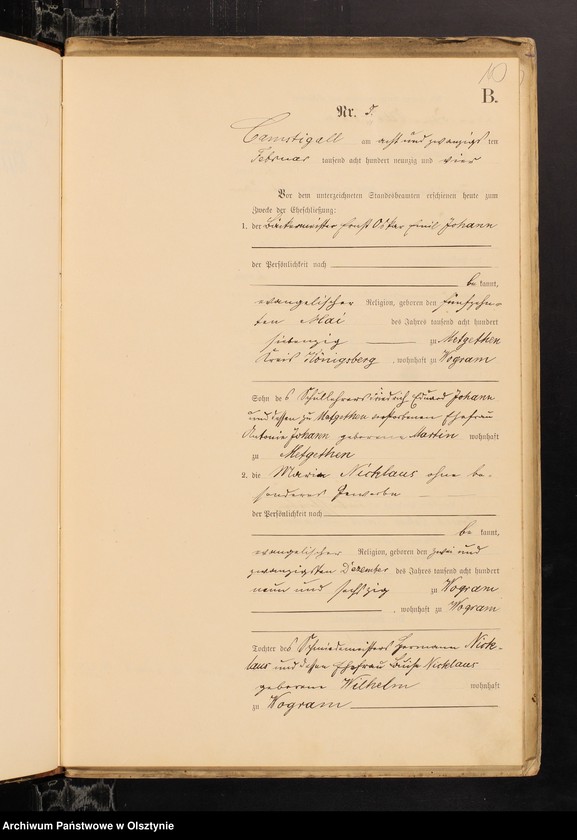 10
B.
Nr. 5.
Camstigall am acht und zwanzigsten
Februar tausend acht hundert neunzig und vier
Vor dem unterzeichneten Standesbeamten erschienen heute zum
Zwecke der Eheschließung:
1. der Bäckermeister Ernst Oskar Emil Johann
der Persönlichkeit nach
be kannt,
evangelischer Religion, geboren den fünfzehn-
ten Mai des Jahres tausend acht hundert
siebenzig zu Metgethen
Kreis Königsberg, wohnhaft zu Wogram
Sohn des Schullehrers Friedrich Eduard Johann
und dessen zu Metgethen verstorbenen Ehefrau
Antonie Johann geborene Martin wohnhaft
zu Metgethen
2. die Maria Nicklaus ohne be-
sonderes Gewerbe
der Persönlichkeit nach
be kannt,
evangelischer Religion, geboren den zwei und
zwanzigsten Dezember des Jahres tausend acht hundert
neun und sechszig zu Wogram
, wohnhaft zu Wogram
Tochter des Schmiedemeisters Hermann Nick-
laus und dessen Ehefrau Luise Nicklaus
geborene Wilhelm wohnhaft
zu Wogram
Archiwum Państwowe w Olsztynie